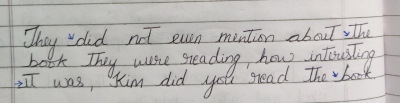 They did not even mention about The
book They were reading, how intiristing
IT was, Kim did you read The book